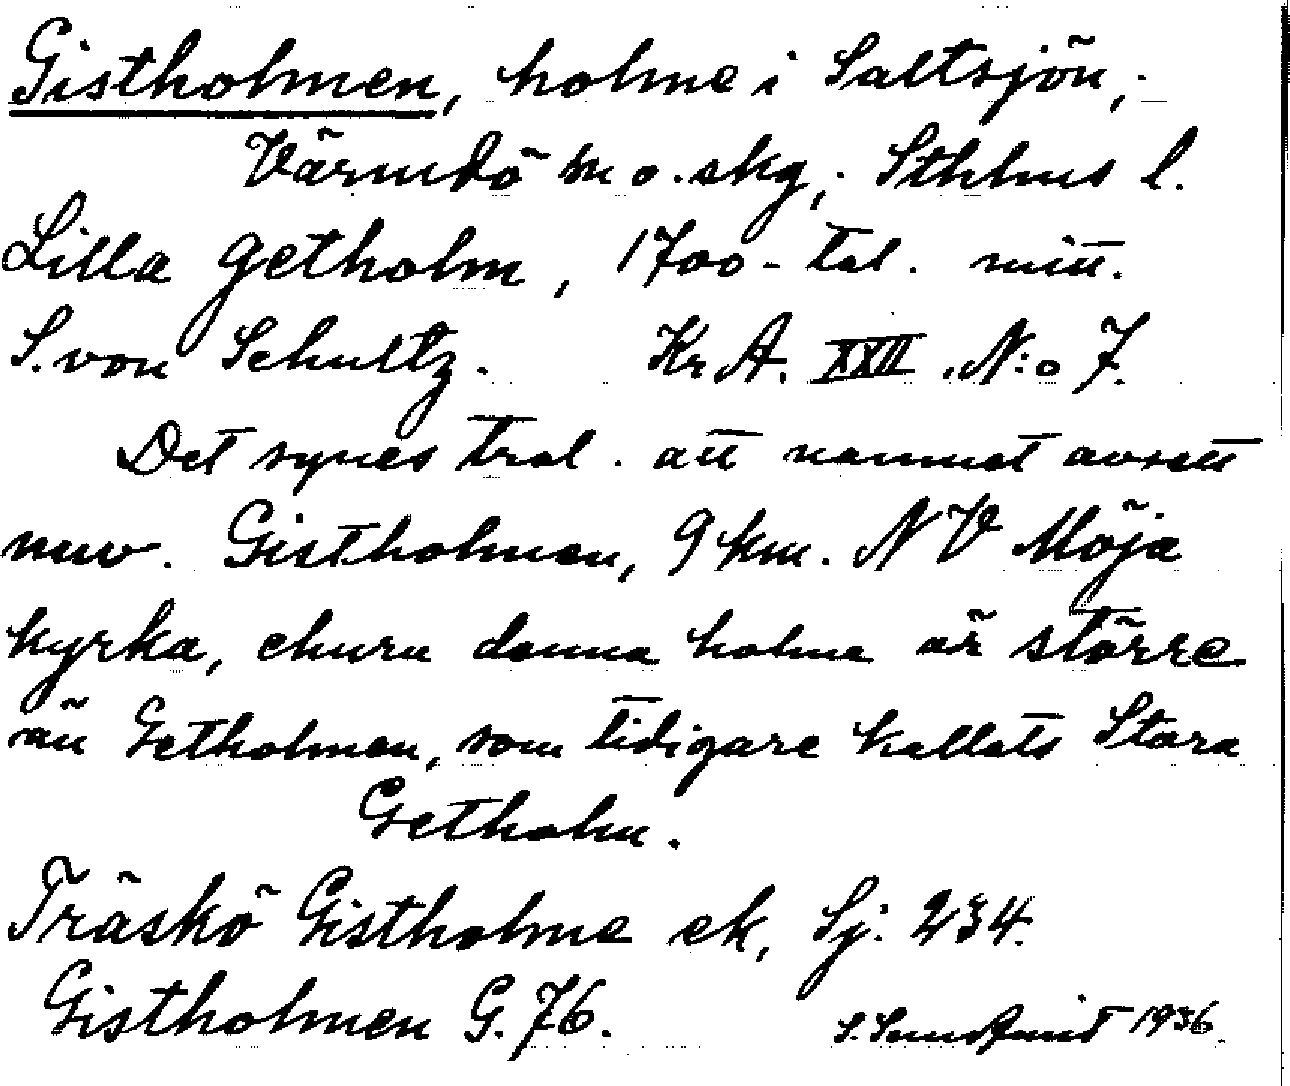 Gistholmen, holme i Saltsjön,
Värmdö m o. skg, Sthlms l.
Lilla Getholm, 1700-tal. mitt.
S. von Schultz. Kr A. XXII. N:o 7.
Det synes trol. att namnet avsett
nuv. Gistholmen, 9 km. NV Möja
kyrka, ehuru denna holme är större
än Getholmen, som tidigare kallats Stora
Getholm.
Träskö Gistholme ek, Sj: 234.
Gistholmen G. 76.
S. 1936